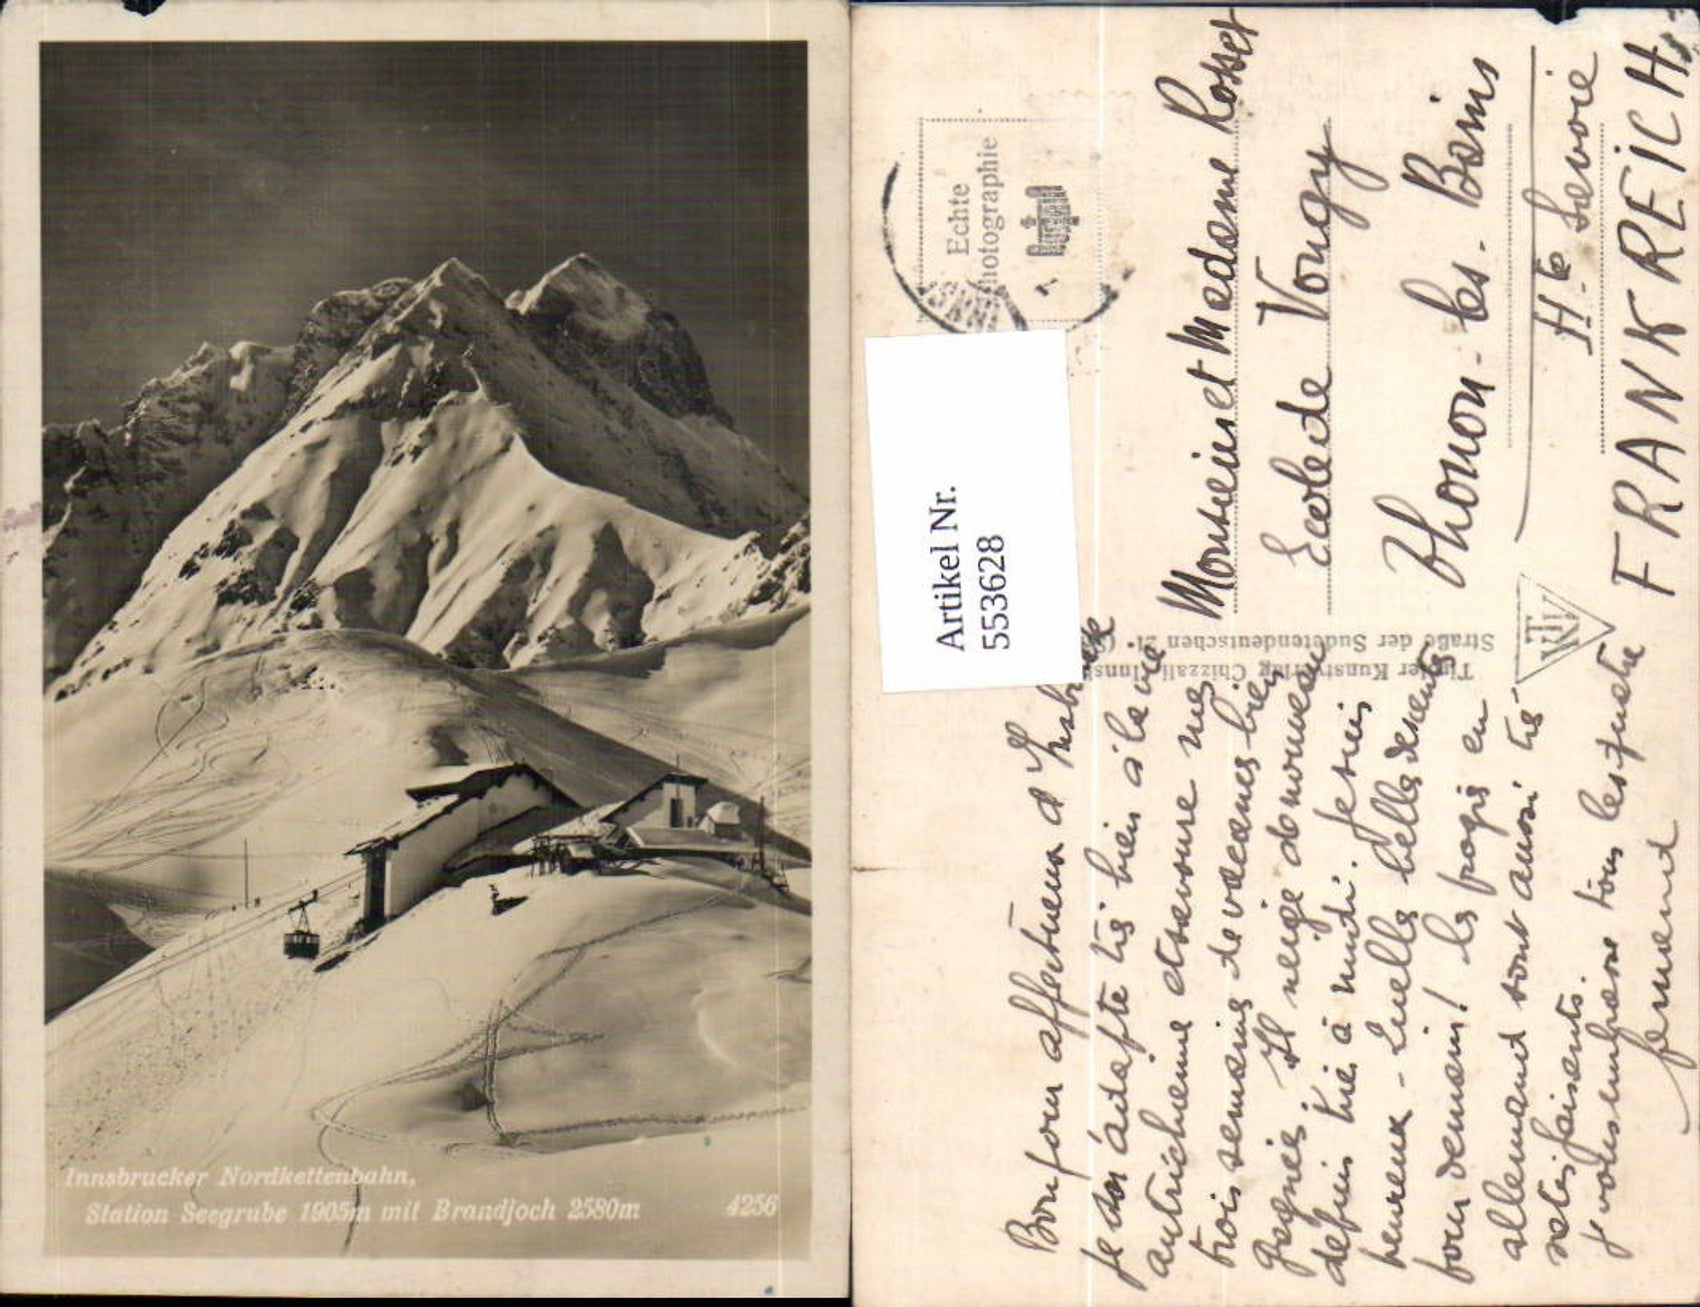 Innsbrucker Nordkettenbahn,
Station Seegrube 1905m mit Brandjoch 2580m 4256
Echte
Photographie
Artikel Nr.
553628
Tiroler Kunstverlag Chizzali, Innsbruck
Straße der Sudetendeutschen 21.
Monsieur et Madame Rosset
Ecole de Vongy
Thonon-les-Bains
Hte Savoie
FRANKREICH
Bonjour affectueux d'Insbruck
Je m'adapte très bien à la vie
autrichienne et savoure mes
trois semaines de vacances bien
gagnées. Il neige de nouveau
depuis hier à midi. Je suis
heureux - Quelles belles descentes
pour demain! Les progrès en
allemand sont aussi très
satisfaisants.
Je vous embrasse tous les quatre
Fernand